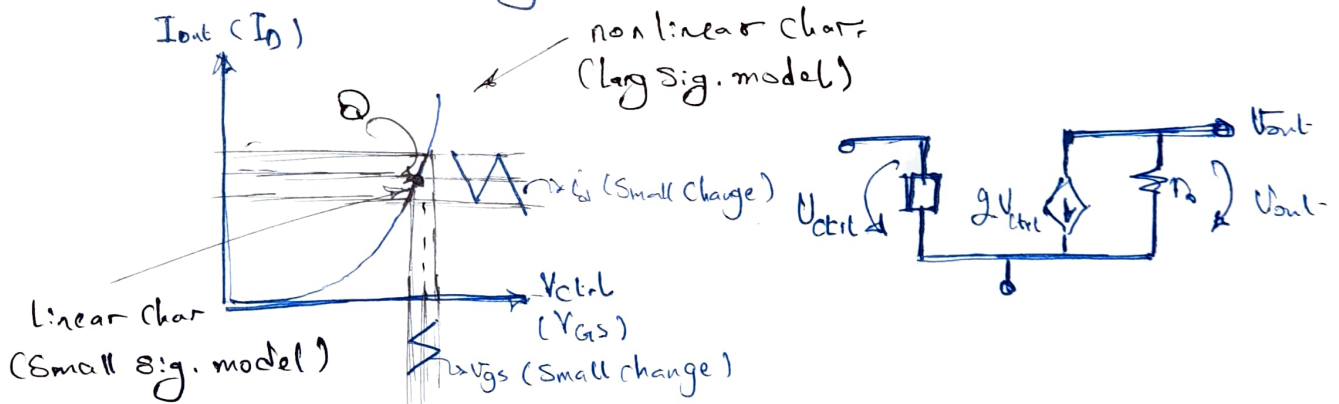 Iout (ID)
non linear char.
(larg sig. model)
Q
id (Small Change)
Vctrl
(VGS)
Linear Char
(Small sig. model)
vgs (Small change)
Vctrl
gVctrl
Vout
Vout